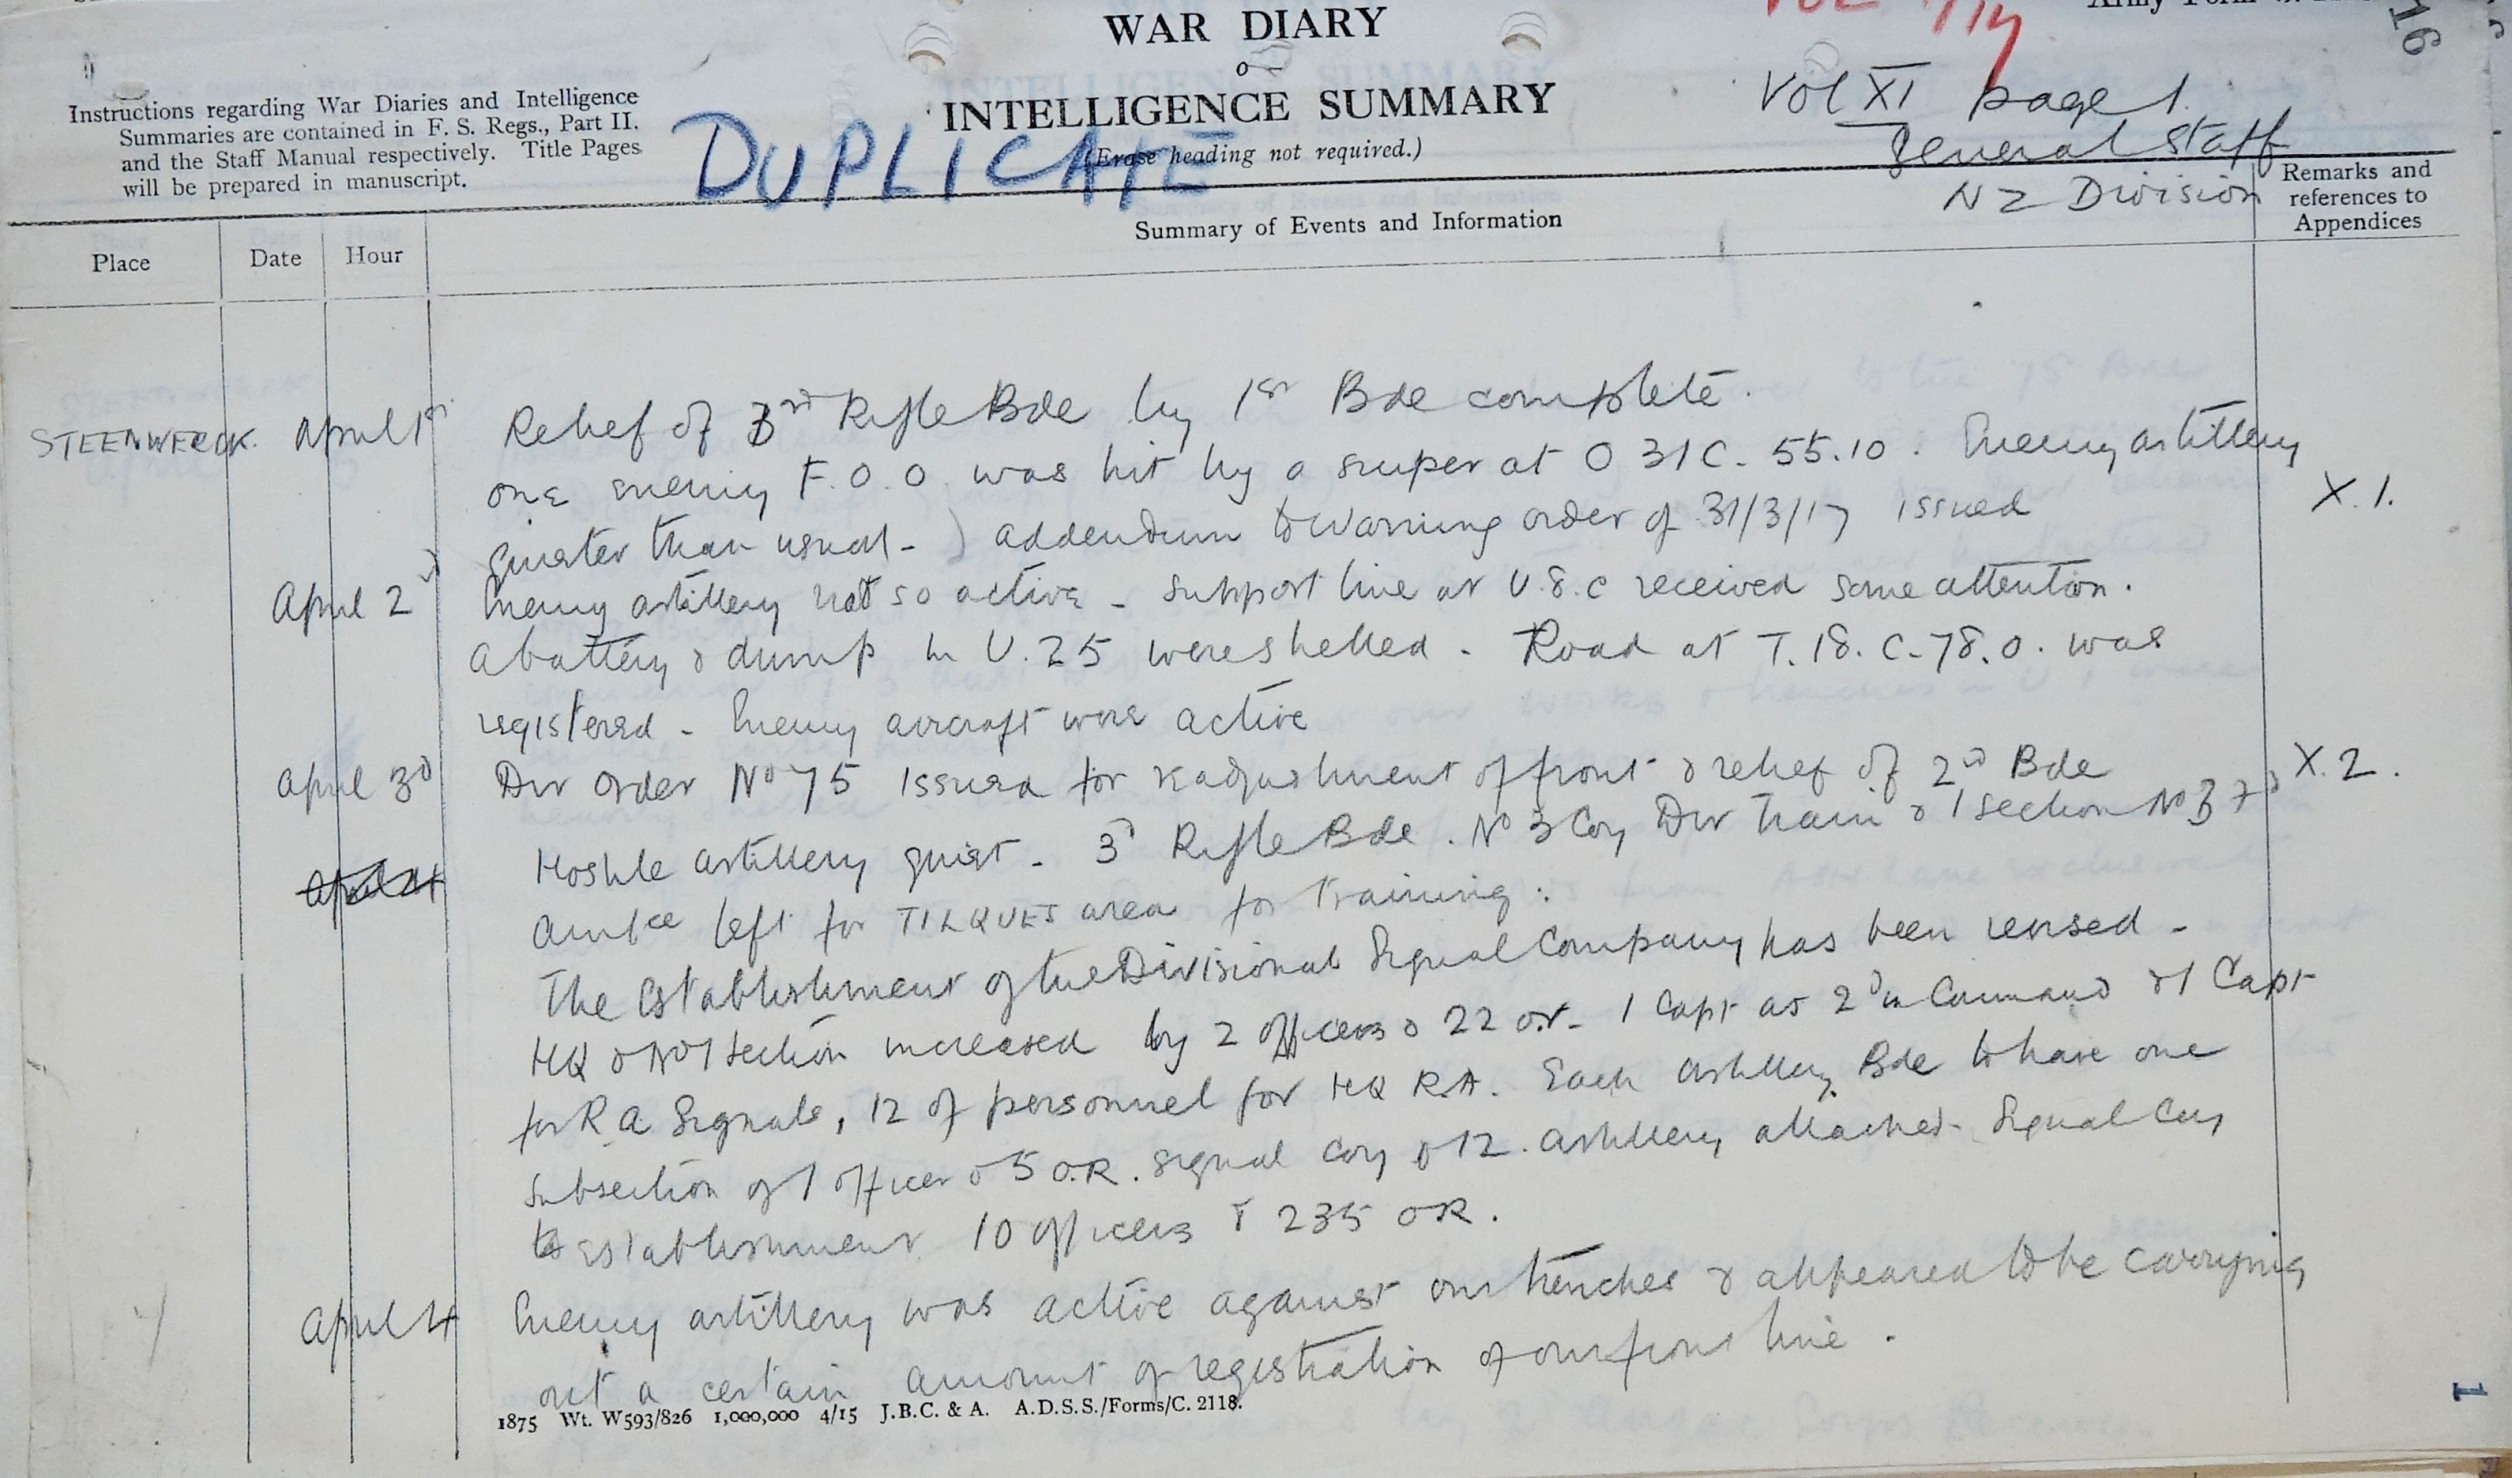 WAR DIARY
or
INTELLIGENCE SUMMARY
(Erase heading not required.)
Army Form
16
Instructions regarding War Diaries and Intelligence
Summaries are contained in F. S. Regs., Part II.
and the Staff Manual respectively. Title Pages
will be prepared in manuscript.
DUPLICATE
Vol XI page 1.
General Staff
NZ Division
Place
Date
Hour
Summary of Events and Information
Remarks and
references to
Appendices
STEENWERCK. April 1st Relief of 3rd Rifle Bde by 1st Bde complete.
one enemy F.O.O. was hit by a sniper at O 31 C. 55.10. Enemy artillery
quieter than usual - ) addendum to Warning order of 31/3/17 issued X.1.
April 2d Enemy artillery not so active - support line at U.8.c received some attention.
A battery & dump in U.25 were shelled - Road at T.18.c.78.0. was
registered - Enemy aircraft were active
April 3d Div order No 75 issued for readjustment of front & relief of 2d Bde X.2.
Hostile artillery quiet - 3d Rifle Bde. No 3 Coy Div train & 1 section No 3 Fd
Ambce left for TILQUES area for training.
The Establishment of the Divisional Signal Company has been revised -
HQ & No 1 section increased by 2 officers & 22 o.r. - 1 Capt as 2d in Command & 1 Capt
for R A Signals, 12 of personnel for HQ RA. Each Artillery Bde to have one
subsection of 1 officer & 5 O.R. signal coy & 12. artillery attached - Signal Coy
establishment 10 officers & 235 OR.
April 4 Enemy artillery was active against our trenches & appeared to be carrying
out a certain amount of registration of our front line.
1875 Wt. W593/826 1,000,000 4/15 J.B.C. & A. A.D.S.S./Forms/C. 2118.
1